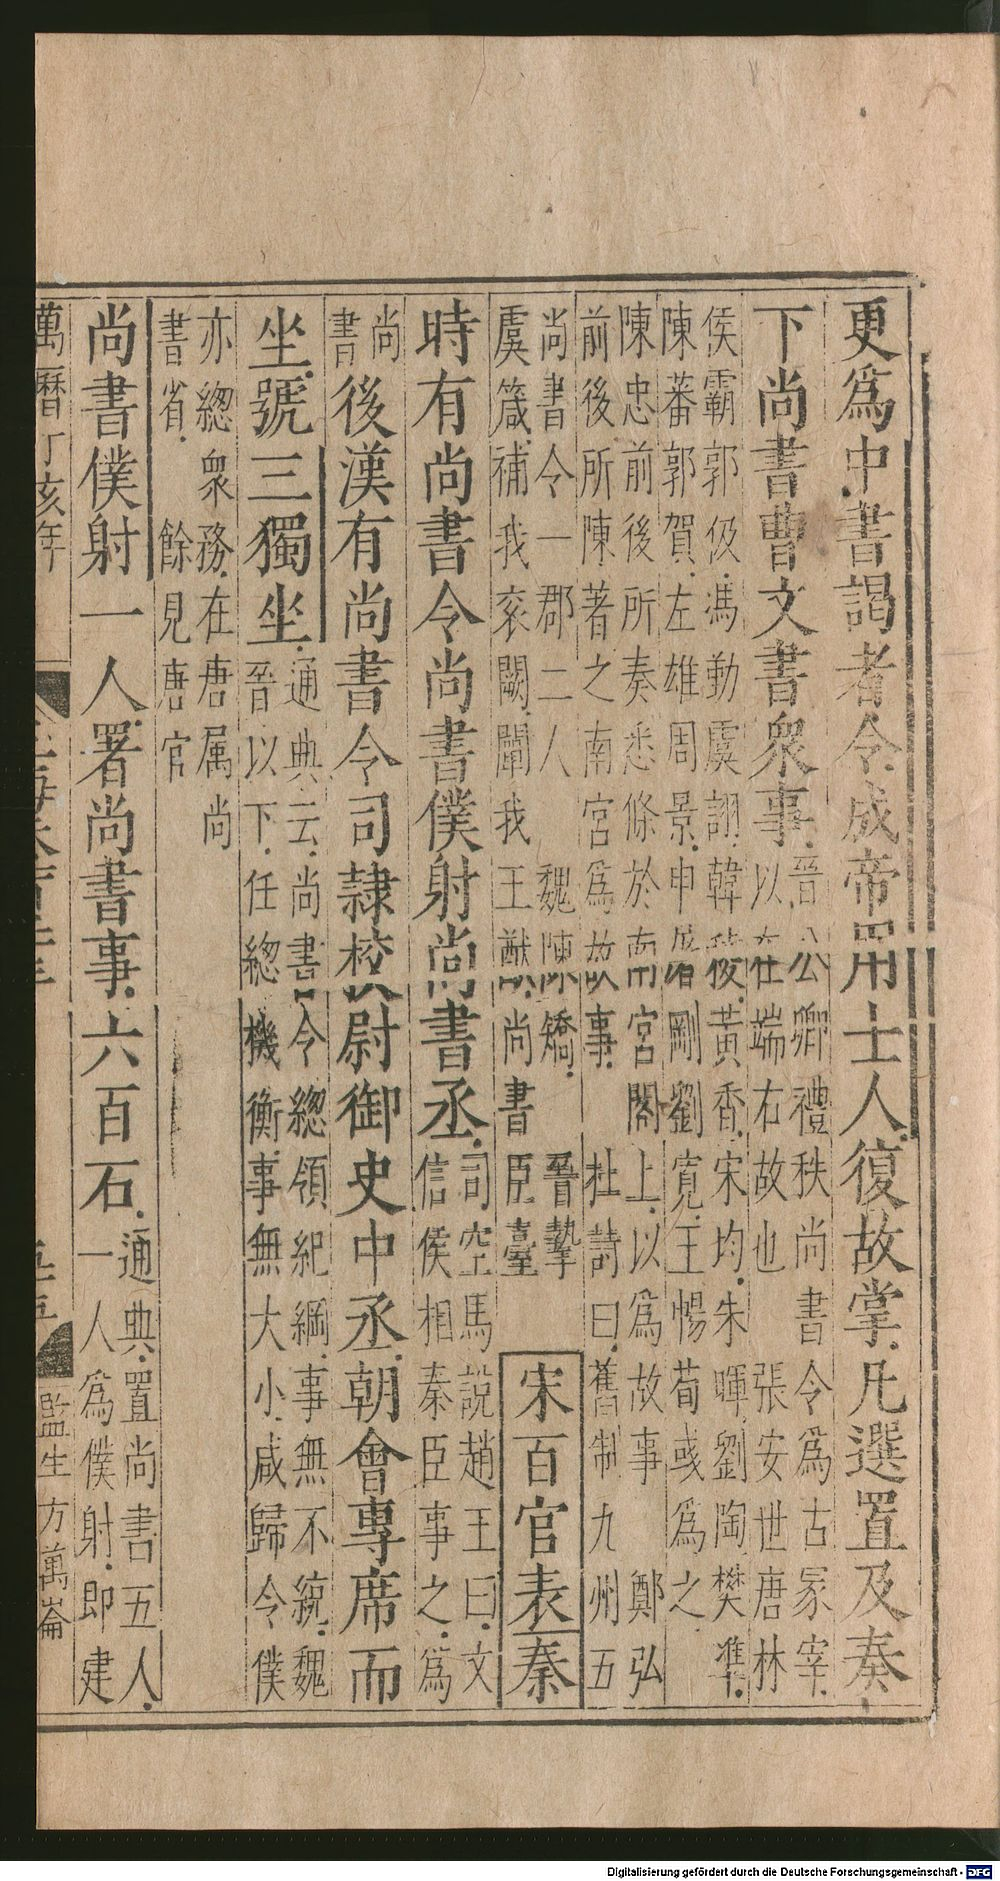 更爲中書謁者令成帝用士人復故掌凡選置及奏
下尚書曹文書衆事晉公卿禮秩尚書令爲古冢宰
以在端右故也張安世唐林
侯霸郭伋馮勤虞詡韓稜黃香宋均朱暉劉陶樊準
陳蕃郭賀左雄周景申屠剛劉寬王暢荀彧爲之
陳忠前後所奏悉條於南宮閣上以爲故事鄭弘
前後所陳著之南宮爲故事杜詩曰舊制九州五
尚書令一郡二人魏陳矯晉摯
虞箴補我衮闕闡我王猷尚書臣臺
宋百官表秦
時有尚書令尚書僕射尚書丞司空馬說趙王曰文
信侯相秦臣事之爲
尚
書後漢有尚書令司隷校尉御史中丞朝會專席而
坐號三獨坐通典云尚書令總領紀綱事無不統魏
晉以下任總機衡事無大小咸歸令僕
亦總衆務在唐属尚
書省餘見唐官
尚書僕射一人署尚書事六百石通典置尚書五人
一人爲僕射即建
萬曆丁亥年
監生方萬崙
Digitalisierung gefördert durch die Deutsche Forschungsgemeinschaft - DFG